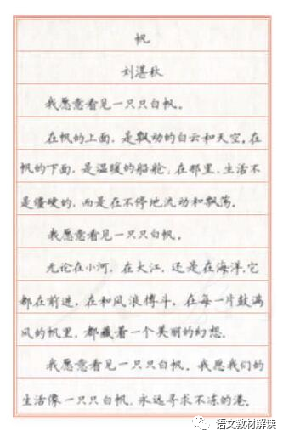 帆
刘湛秋
我愿意看见一只只白帆。
在帆的上面，是飘动的白云和天空。在
帆的下面，是温暖的船舱，在那里，生活不
是僵硬的，而是在不停地流动和飘荡。
我愿意看见一只只白帆。
无论在小河，在大江，还是在海洋，它
都在前进，在和风浪搏斗，在每一片鼓满
风的帆里，都藏着一个美丽的幻想。
我愿意看见一只只白帆。我愿我们的
生活像一只只白帆，永远寻求不冻的港。
语文教材解读